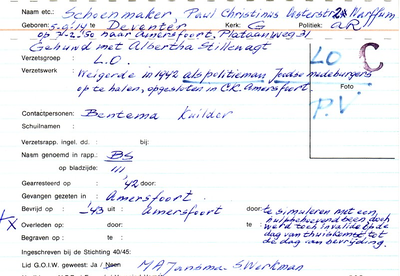 Naam etc.: Schoenmaker, Paul Christinus Usterstr 21 Warffum
Geboren: 5-9-'14 te Deventer Kerk: G Politiek: a.R.
op 7-2-'50 naar Amersfoort, Plataanweg 31
Gehuwd met Albertha Stillenagt
Verzetsgroep L.O.
LO C
Verzetswerk Weigerde in 1942 als politieman Joodse medeburgers
op te halen, opgesloten in C.K. Amersfoort
Foto
P.V
Contactpersonen: Bentema Kuilder
Schuilnaam :
Verzetsrapp. ingel. dd. : bij:
Naam genoemd in rapp.: BS
op bladzijde: III
Gearresteerd op : '42 door:
Gevangen gezeten in : Amersfoort
Bevrijd op : -'43 uit : Amersfoort door: te simuleren met een
Overleden op: door: werd toch invalide op de
Begraven op : te : dag van thuiskomst tot
de dag van bevrijding.
Ingeschreven bij de Stichting 40/45:
Lid G.O.I.W. geweest: Ja / Neen M A Jansma. S Werkman